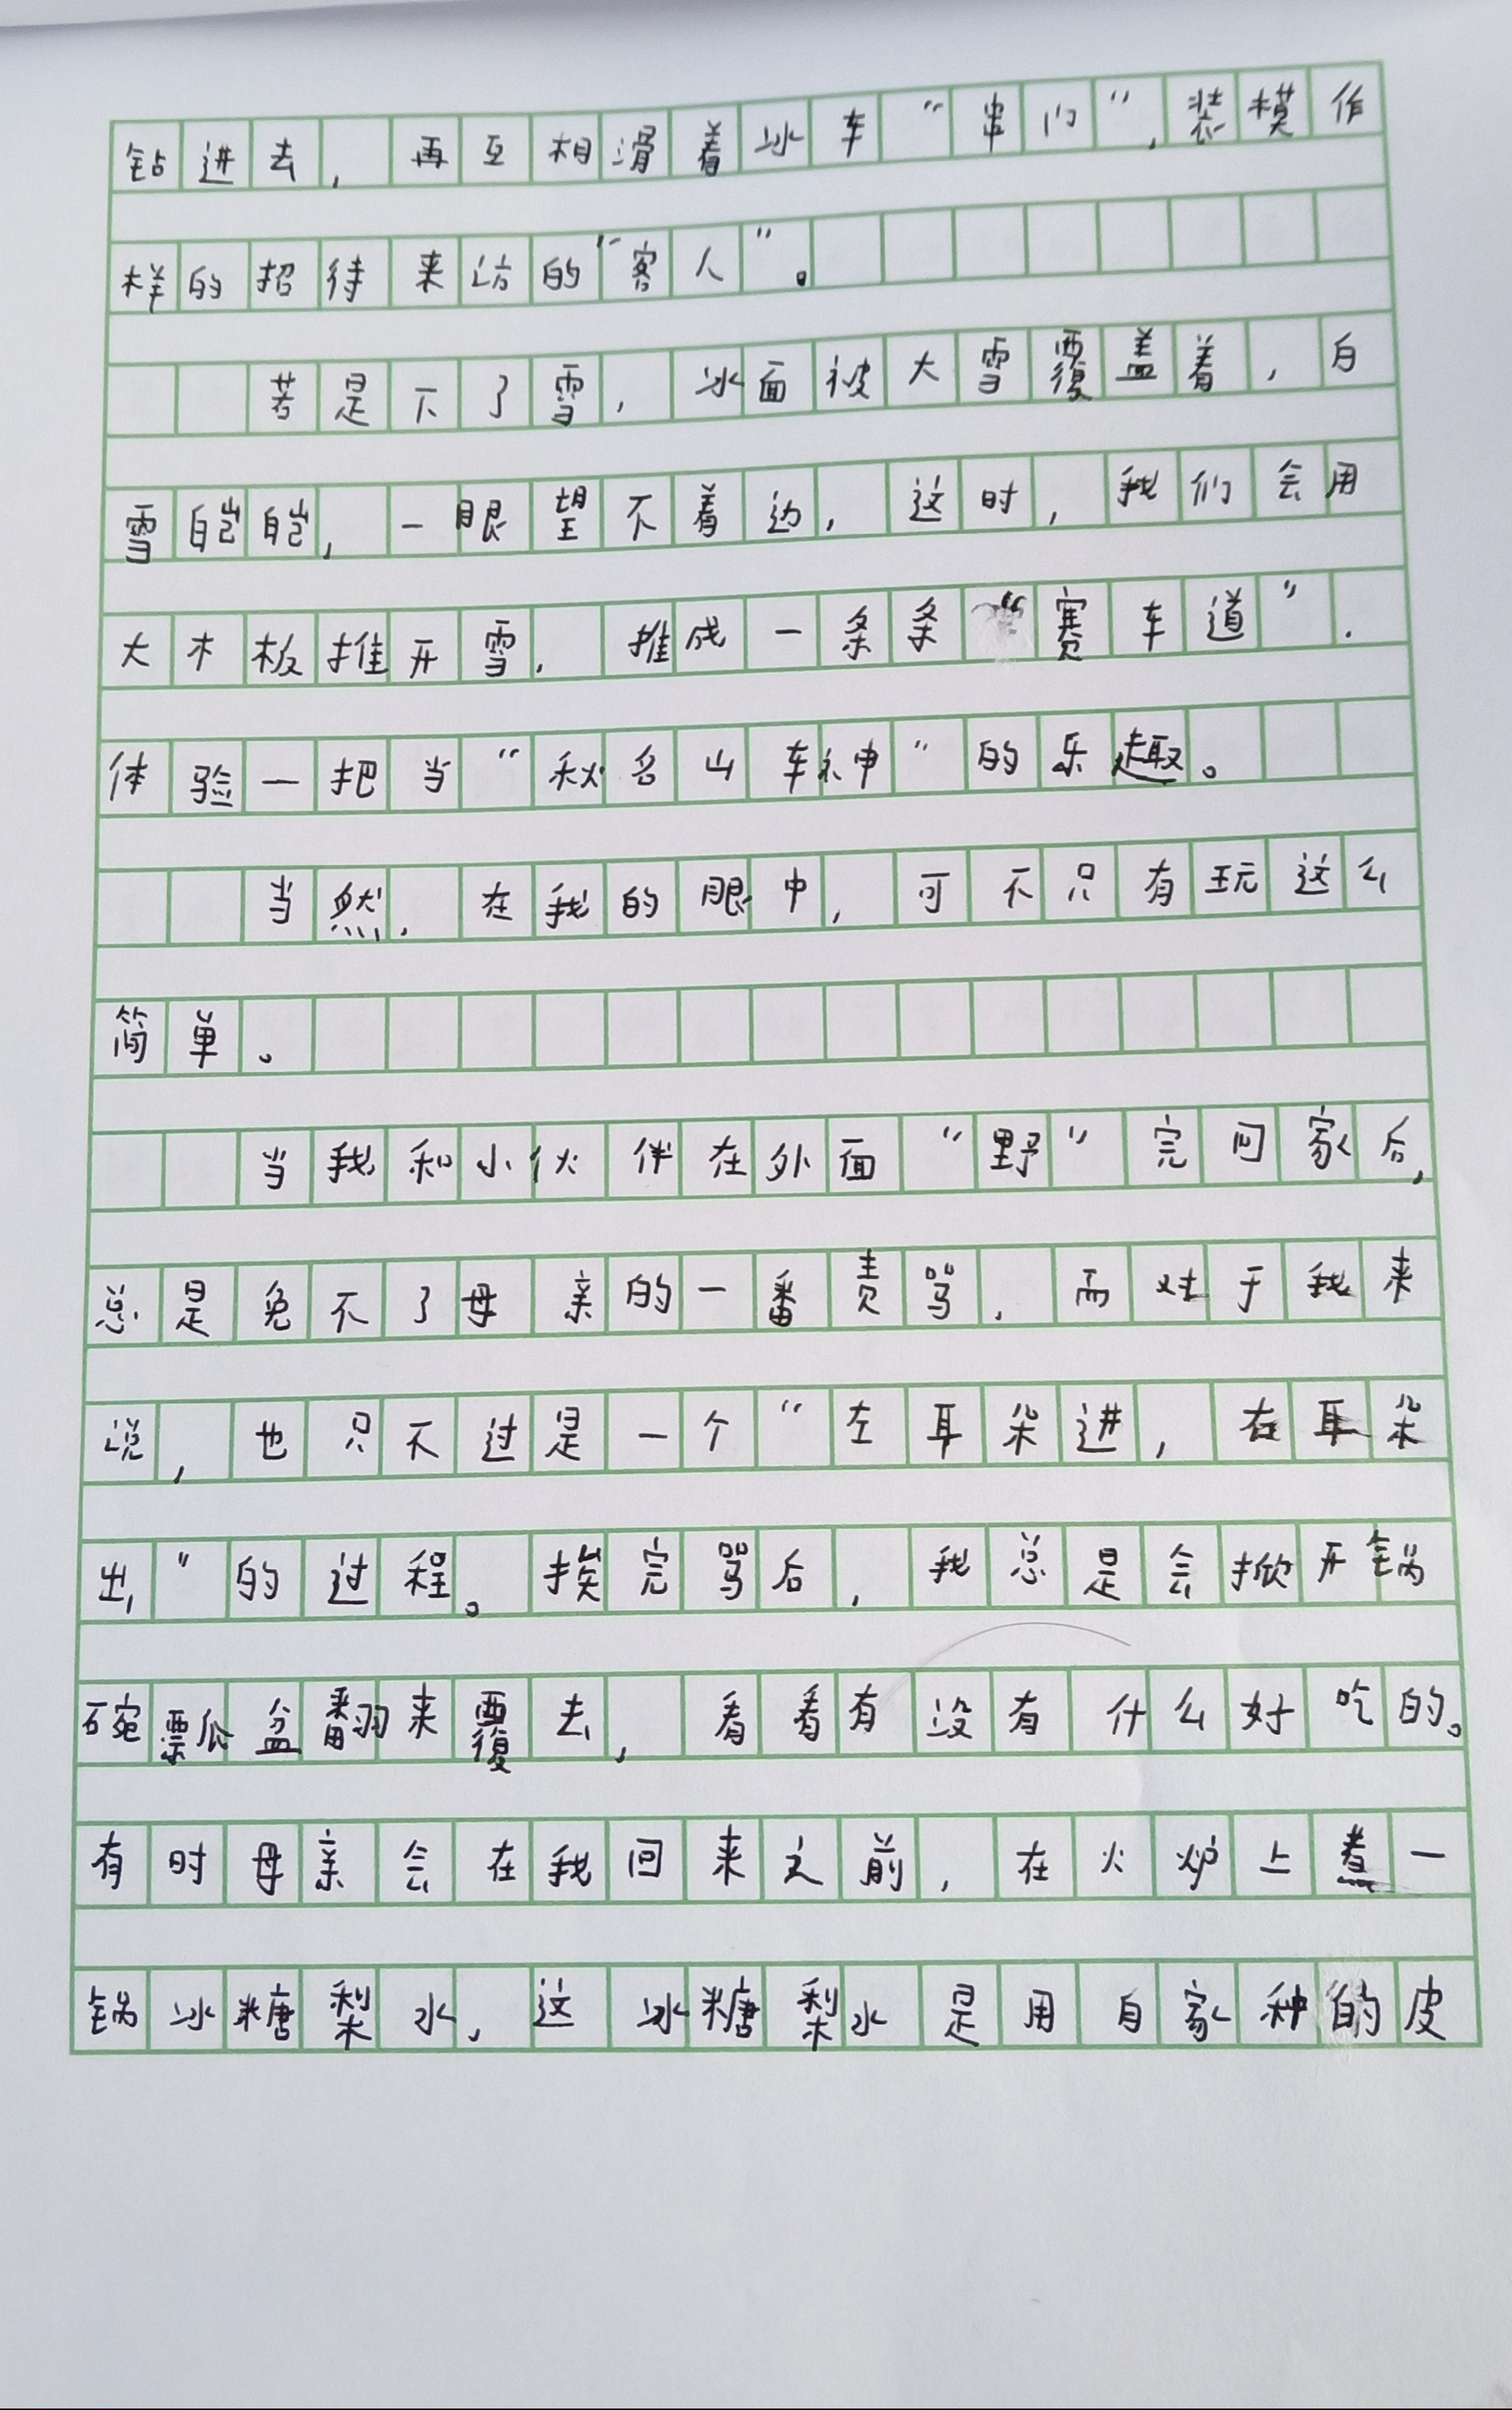 钻进去，再互相滑着冰车“串门”，装模作
样的招待来访的“客人”。
若是下了雪，冰面被大雪覆盖着，白
雪皑皑，一眼望不着边，这时，我们会用
大木板推开雪，推成一条条“赛车道”．
体验一把当“秋名山车神”的乐趣。
当然，在我的眼中，可不只有玩这么
简单。
当我和小伙伴在外面“野”完回家后，
总是免不了母亲的一番责骂，而对于我来
说，也只不过是一个“左耳朵进，在耳朵
出”的过程。挨完骂后，我总是会掀开锅
碗瓢盆翻来覆去，看看有没有什么好吃的。
有时母亲会在我回来之前，在火炉上煮一
锅冰糖梨水，这冰糖梨水是用自家种的皮